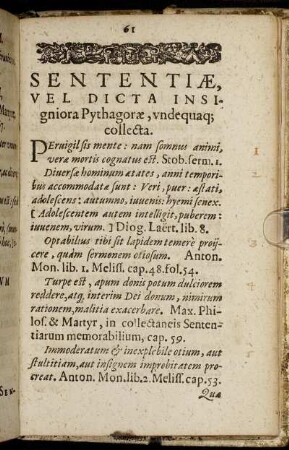 61
SENTENTIÆ,
VEL DICTA INSI-
gniora Pythagoræ, vndequaq;
collecta.
Peruigil sis mente: nam somnus animi,
veræ mortis cognatus est. Stob. serm. 1.
Diuersæ hominum ætates, anni tempori-
bus accommodatæ sunt: Veri, puer: æstati,
adolescens: autumno, iuuenis: hyemi senex.
[Adolescentem autem intelligit, puberem:
iuuenem, virum.] Diog. Laërt. lib. 8.
Optabilius tibi sit lapidem temerè proij-
cere, quàm sermonem otiosum. Anton.
Mon. lib. 1. Meliss. cap. 48. fol. 54.
Turpe est, apum donis potum dulciorem
reddere, atq; interim Dei donum, nimirum
rationem, malitia exacerbare. Max. Phi-
los. & Martyr, in collectaneis Senten-
tiarum memorabilium, cap. 59.
Immoderatum & inexplebile otium, aut
stultitiam, aut insignem improbitatem pro-
creat. Anton. Mon. lib. 2. Meliss. cap. 53.
Quæ